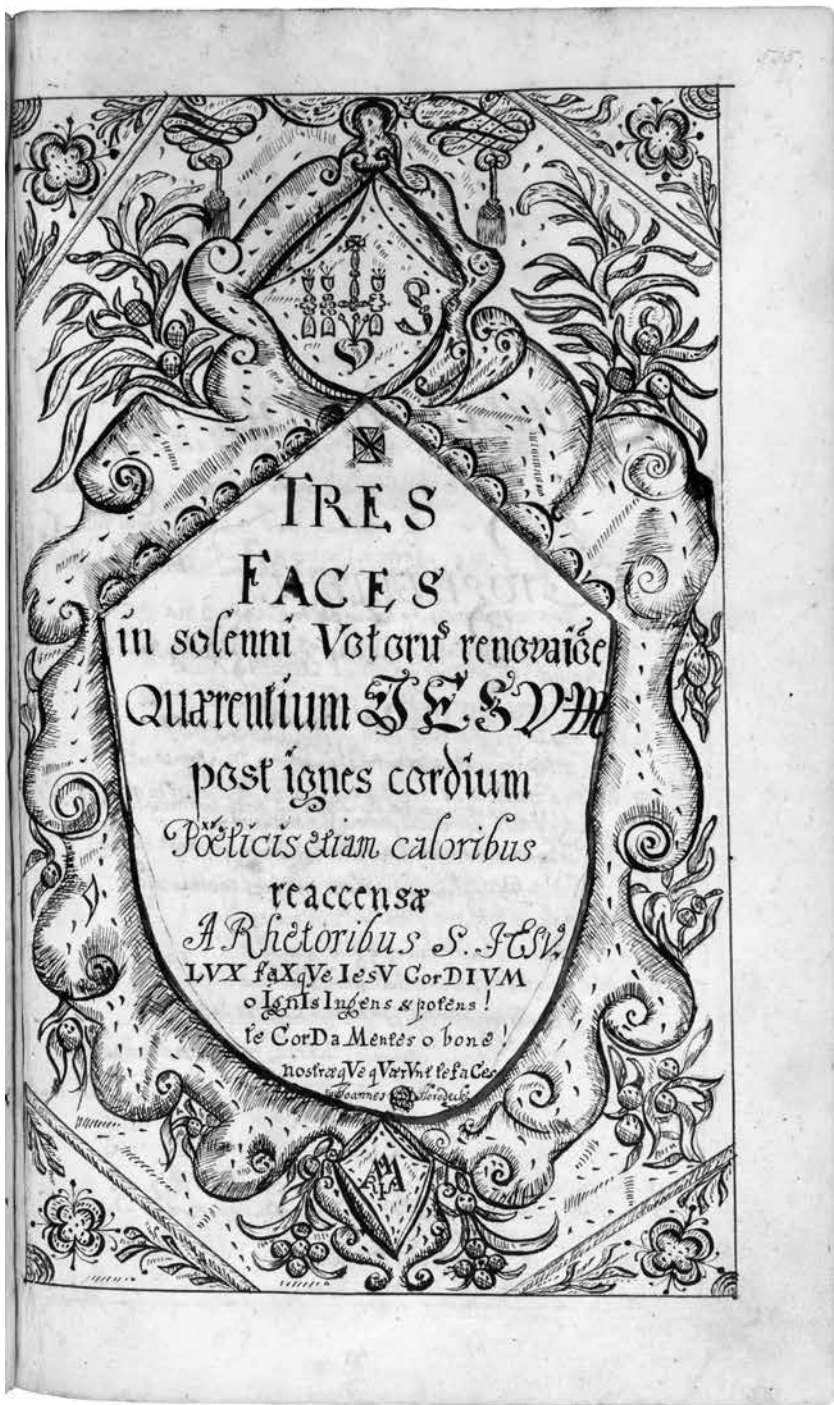 535.
TRES
FACES
in solenni Votorũ renovaiõe
Quærentium JESVM
post ignes cordium
Pöeticis etiam caloribus
reaccensæ
A Rhetoribus S. JESV.
LVX faXqVe IesV CorDIVM
o IgnIs Ingens & potens!
te CorDa Mentes o bone!
nostræqVe qVærVnt te faCes
Joannes
MARIA